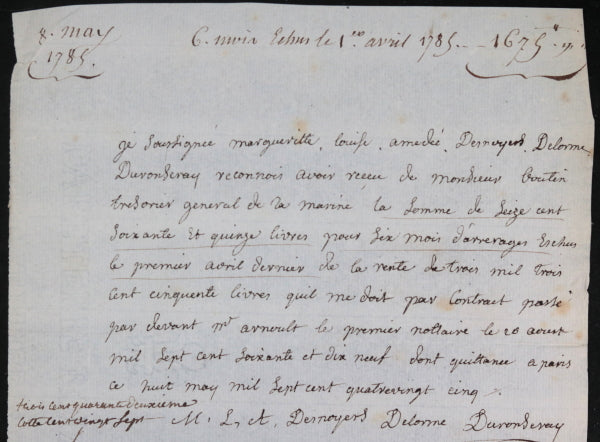 8. may
1785.
6. mois Echus le 1er avril 1785. 1675
je soussignée margueritte, louise, amedée, Desnoyers, Delorme
Duronseray reconnois avoir receu de monsieur boutin
tresorier general de la marine la somme de Seize cent
soixante et quinze livres pour six mois d'arrerages Eschus
le premier avril dernier de la rente de trois mil trois
cent cinquente livres quil me doit par Contract passé
par devant mr arnoult le premier nottaire le 20 aoust
mil sept cent soixante et dix neuf dont quittance a paris
ce huit may mil sept cent quatrevingt cinq
trois cent quarante deuxieme
Cotte Cent vingt sept
M. L. A. Desnoyers Delorme Duronseray